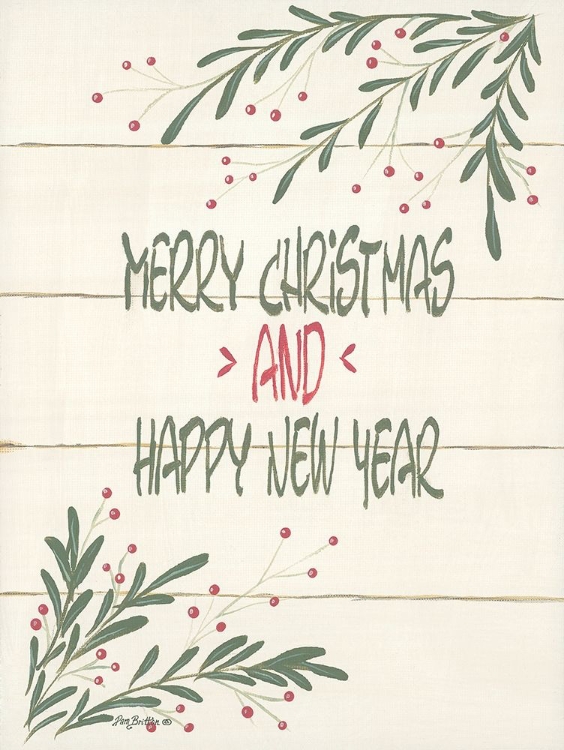 MERRY CHRiSTMAS
> AND <
HAPPY NEW YEAR
Pam Britton ©